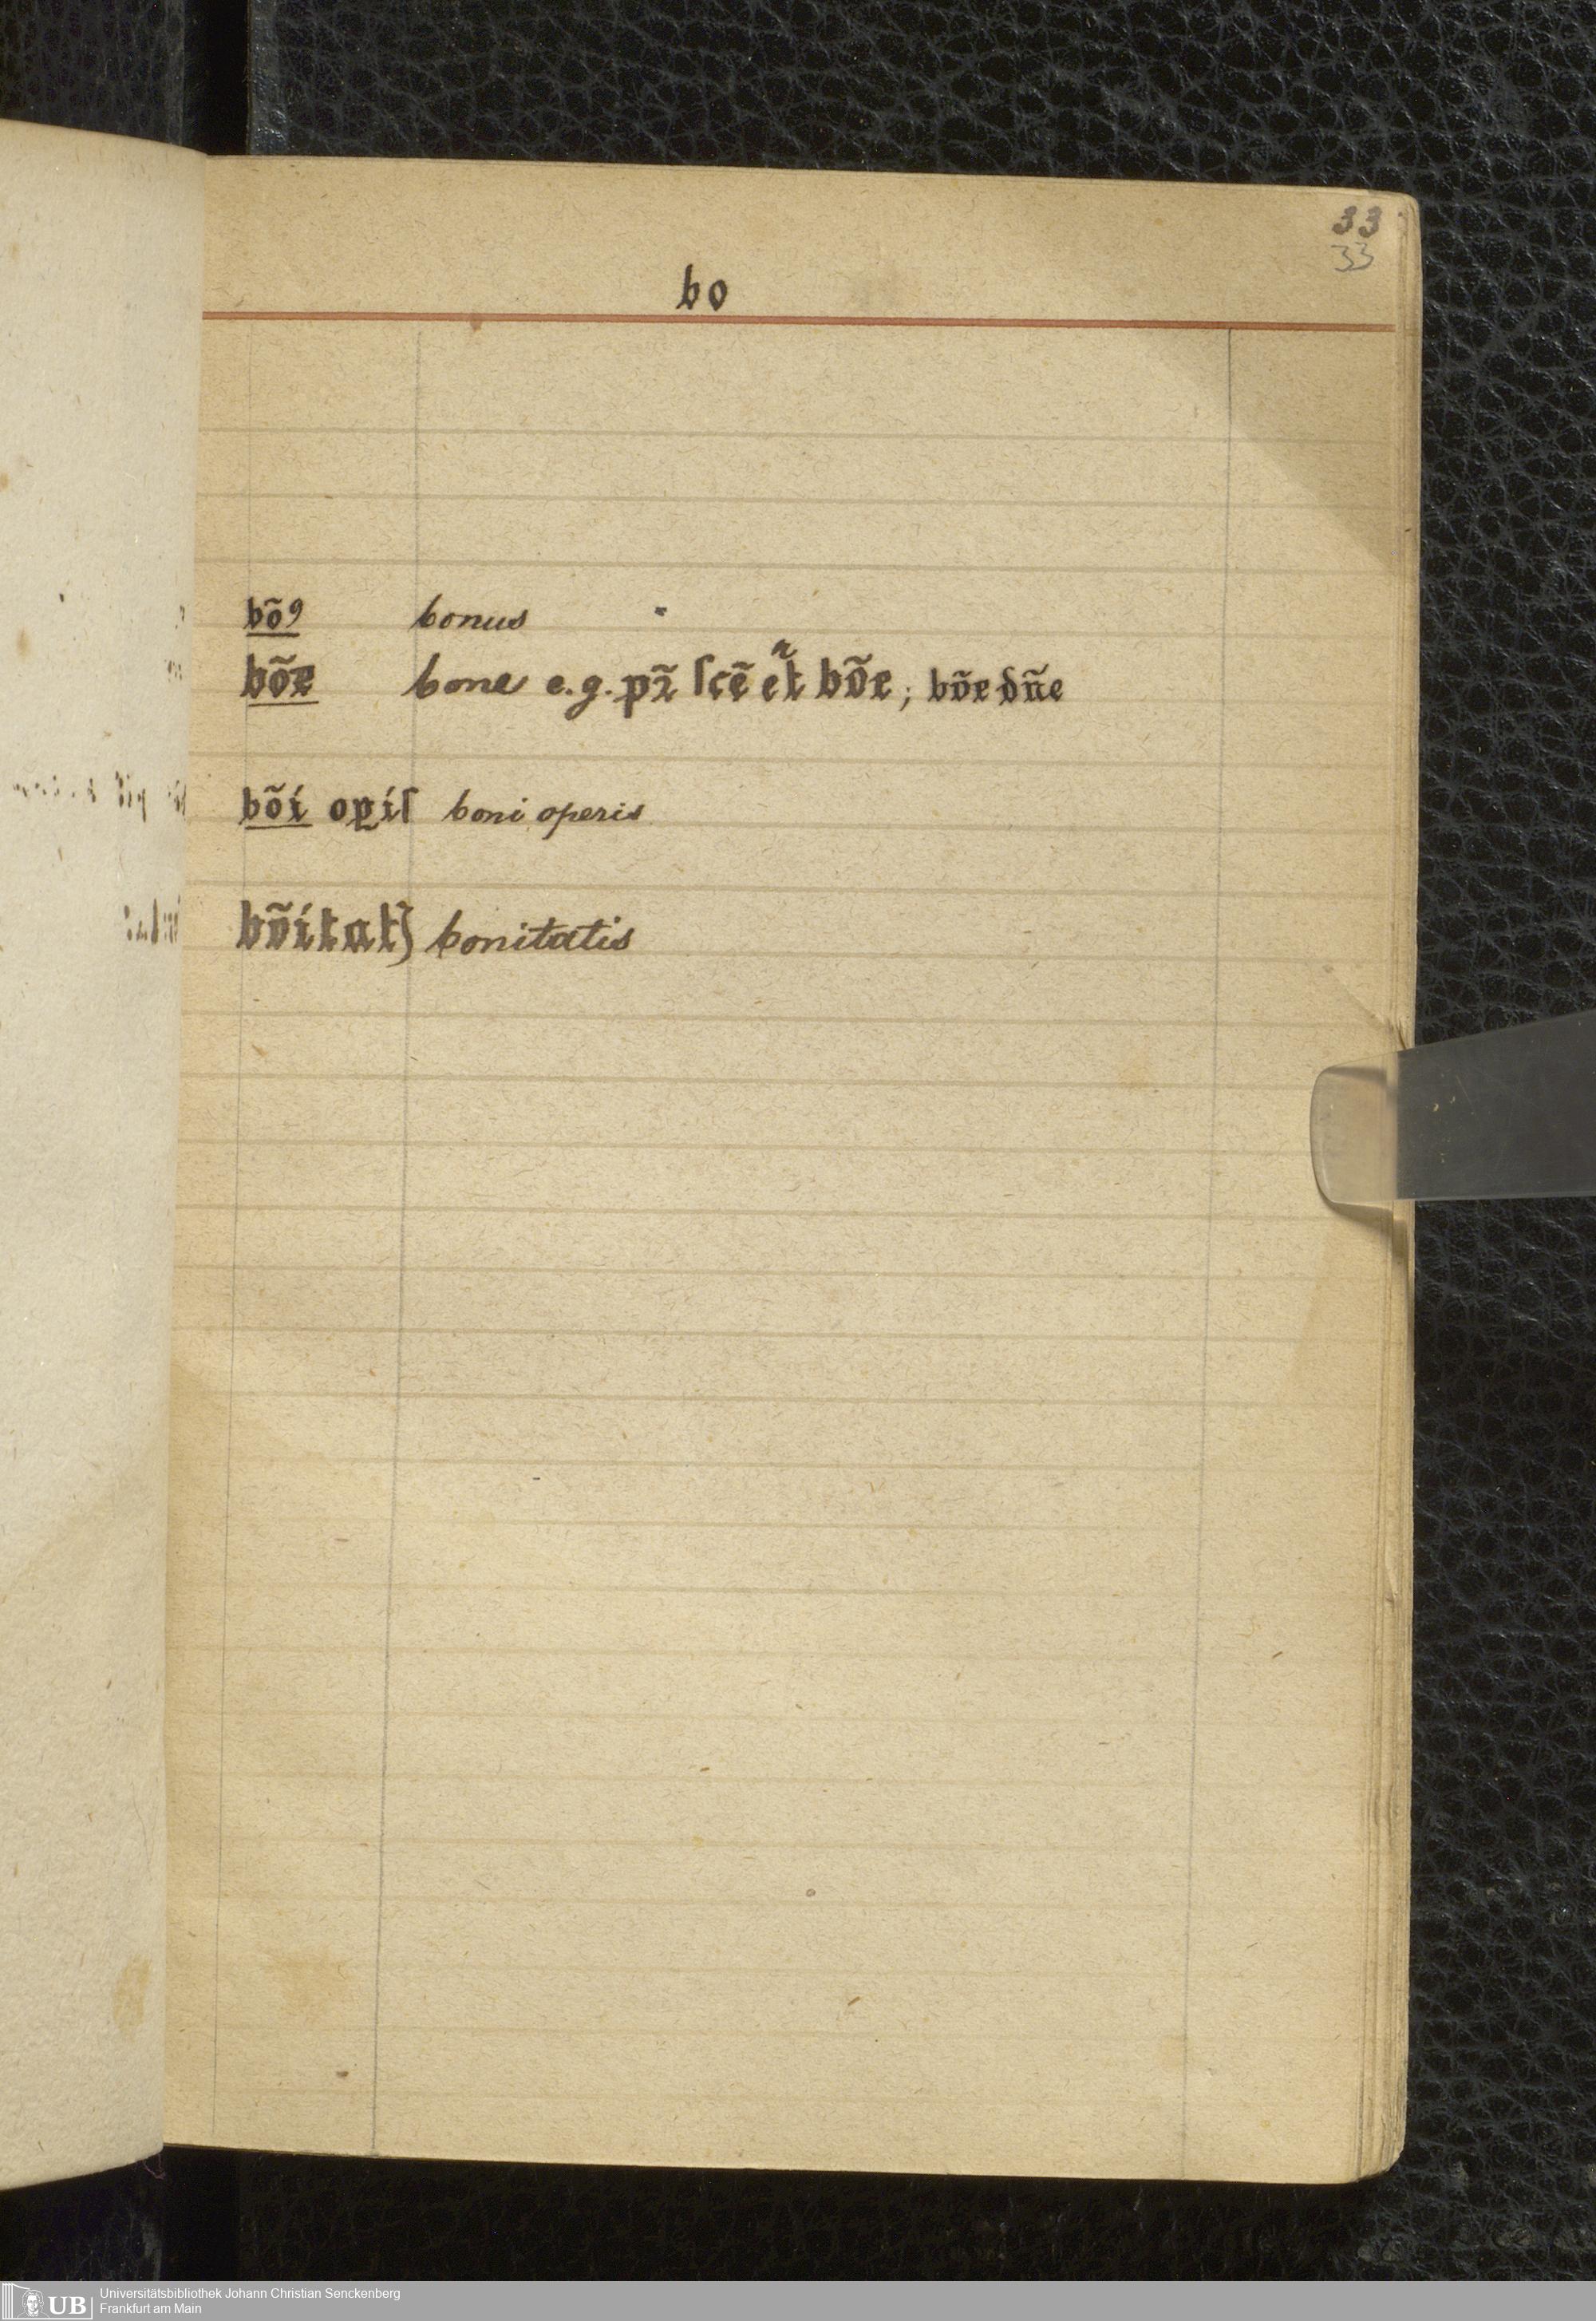 33
33
bo
bõꝰ bonus
bõe bone e.g. pr̃ ſcẽ et̃ bõe; bõe dñe
bõi oꝑiſ boni operis
bõitatꝭ bonitatis
UB Universitätsbibliothek Johann Christian Senckenberg
Frankfurt am Main